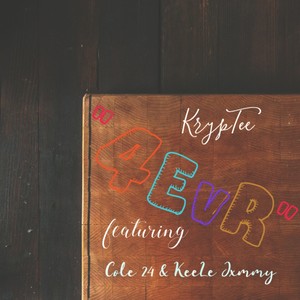 KrypTee
"4EVR"
featuring
Cole 24 & KeeLe Jxmmy